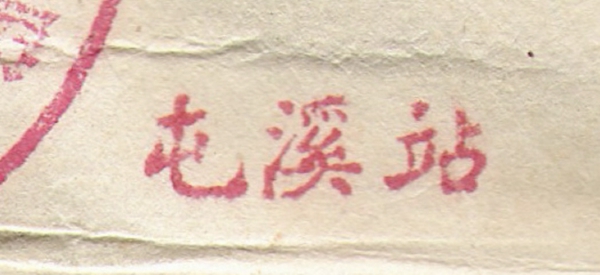 屯溪站